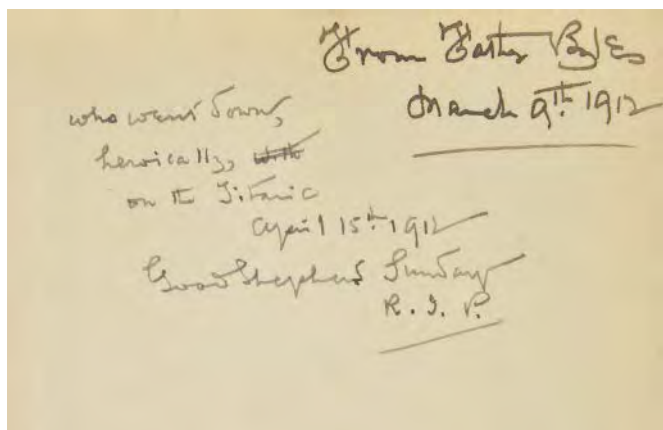 From Father Byles
March 9th. 1912
who went down,
heroically, with
on the Titanic
April 15th. 1912
Good Shepherd Sunday
R. I. P.